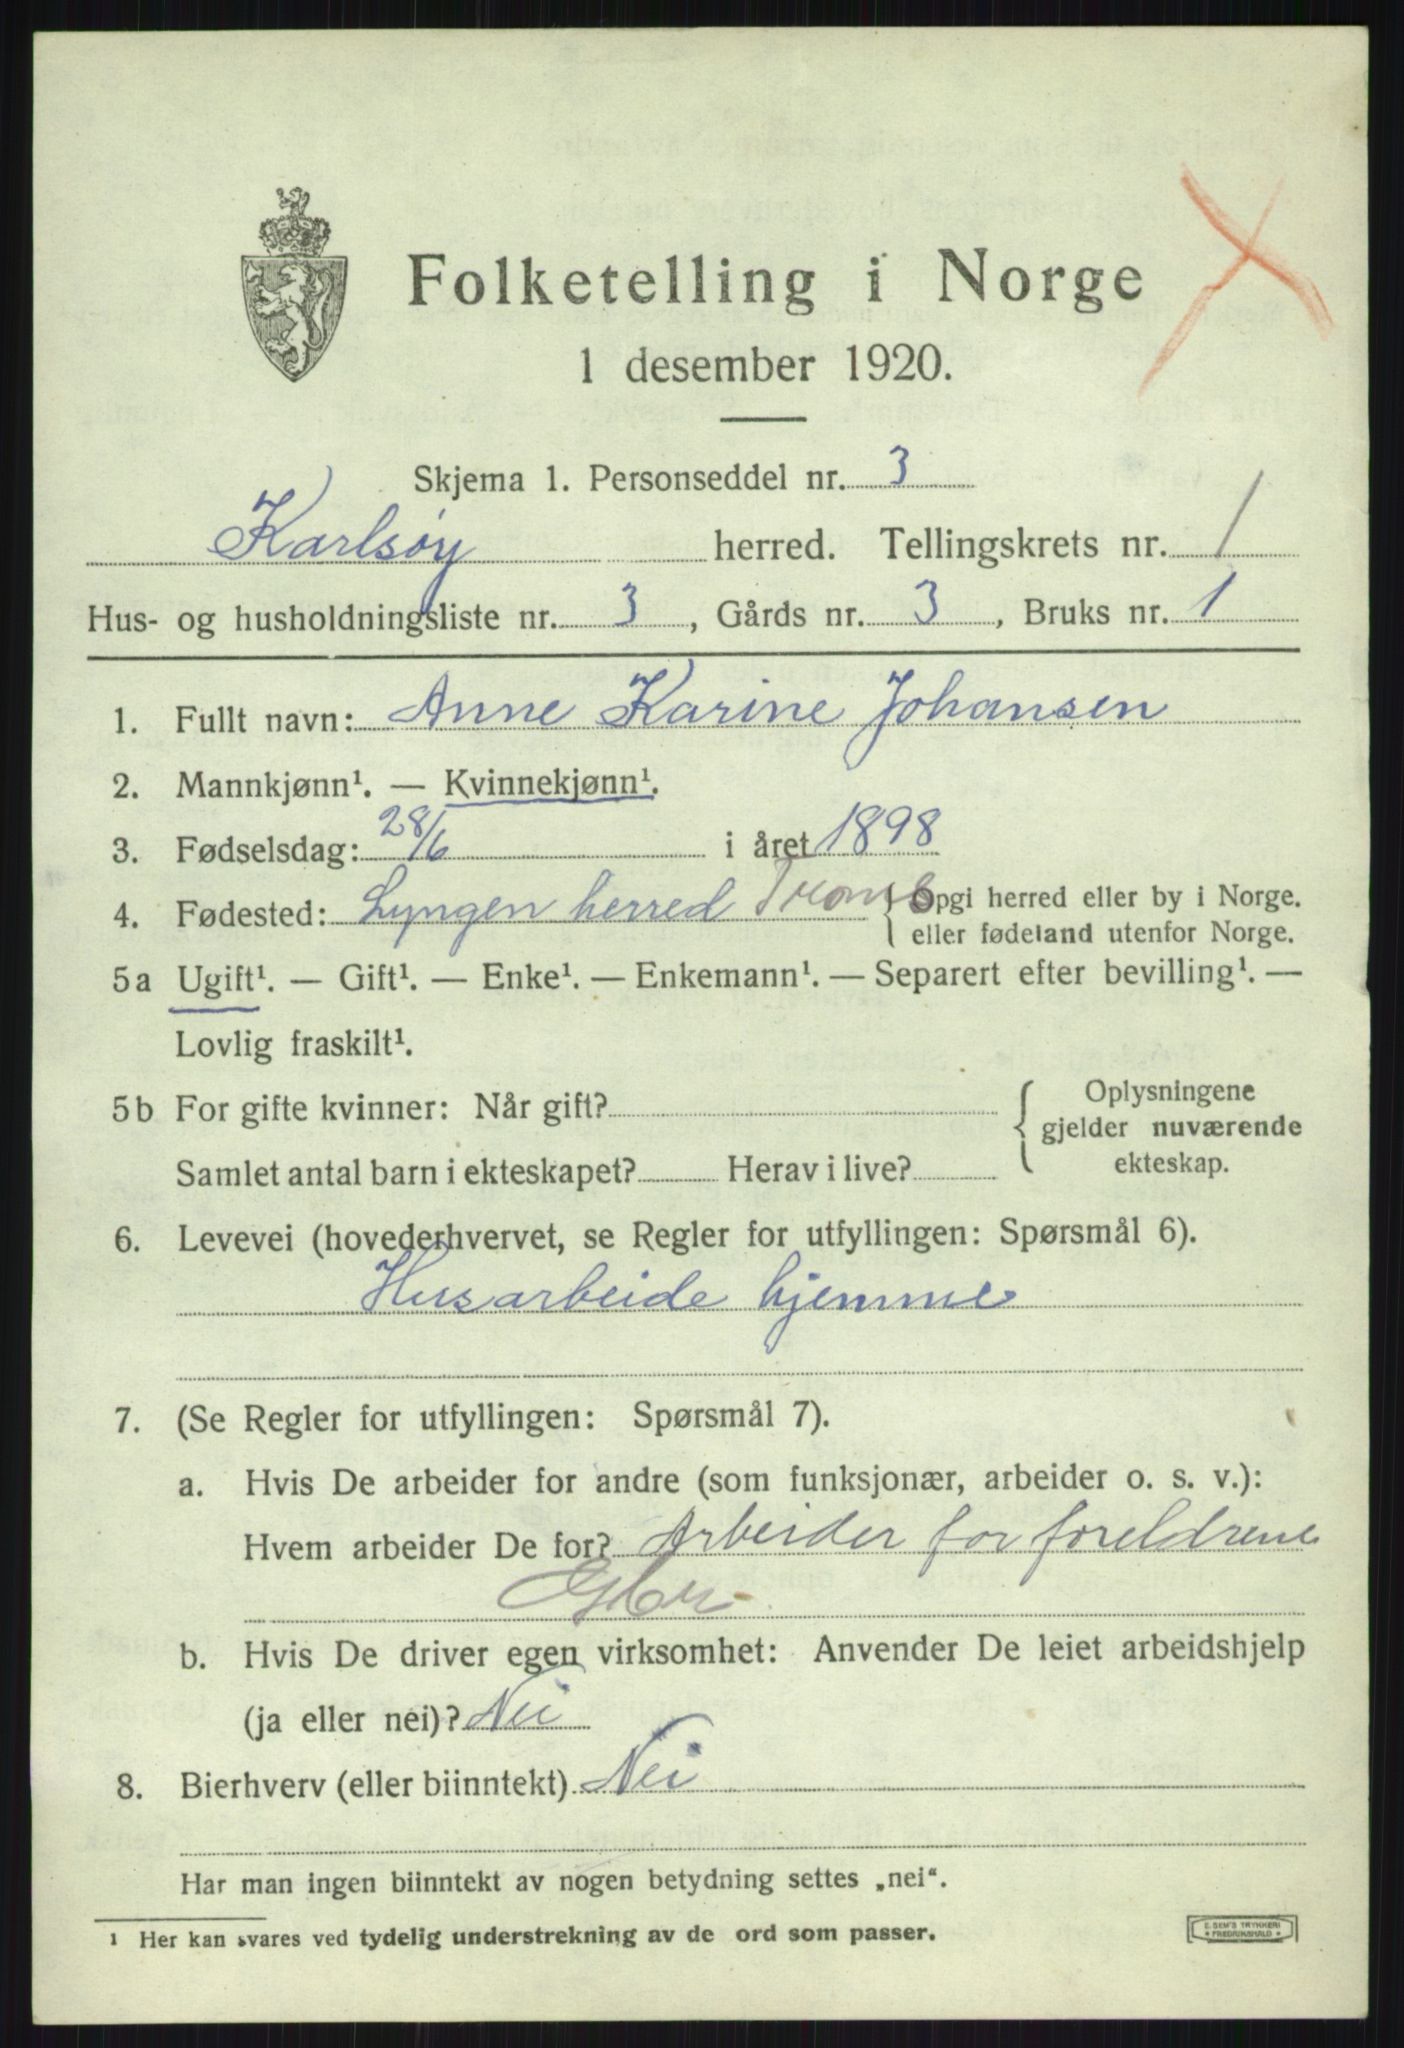 Folketelling i Norge
1 desember 1920.
Skjema 1. Personseddel nr. 3
Karlsøy herred. Tellingskrets nr. 1
Hus- og husholdningsliste nr. 3, Gårds nr. 3, Bruks nr. 1
1. Fullt navn: Anne Karine Johansen
2. Mannkjønn¹. — Kvinnekjønn¹.
3. Fødselsdag: 28/6 i året 1898
4. Fødested: Lyngen herred Troms { Opgi herred eller by i Norge.
eller fødeland utenfor Norge.
5a Ugift¹. — Gift¹. — Enke¹. — Enkemann¹. — Separert efter bevilling¹. —
Lovlig fraskilt¹.
5b For gifte kvinner: Når gift?
Samlet antal barn i ekteskapet? Herav i live?
{ Oplysningene
gjelder nuværende
ekteskap.
6. Levevei (hovederhvervet, se Regler for utfyllingen: Spørsmål 6).
Husarbeide hjemme
7. (Se Regler for utfyllingen: Spørsmål 7).
a. Hvis De arbeider for andre (som funksjonær, arbeider o. s. v.):
Hvem arbeider De for? Arbeider for foreldrene
b. Hvis De driver egen virksomhet: Anvender De leiet arbeidshjelp
(ja eller nei)? Nei
8. Bierhverv (eller biinntekt) Nei
Har man ingen biinntekt av nogen betydning settes „nei“.
¹ Her kan svares ved tydelig understrekning av de ord som passer.
E. SEM'S TRYKKERI
* FREDRIKSHALD *